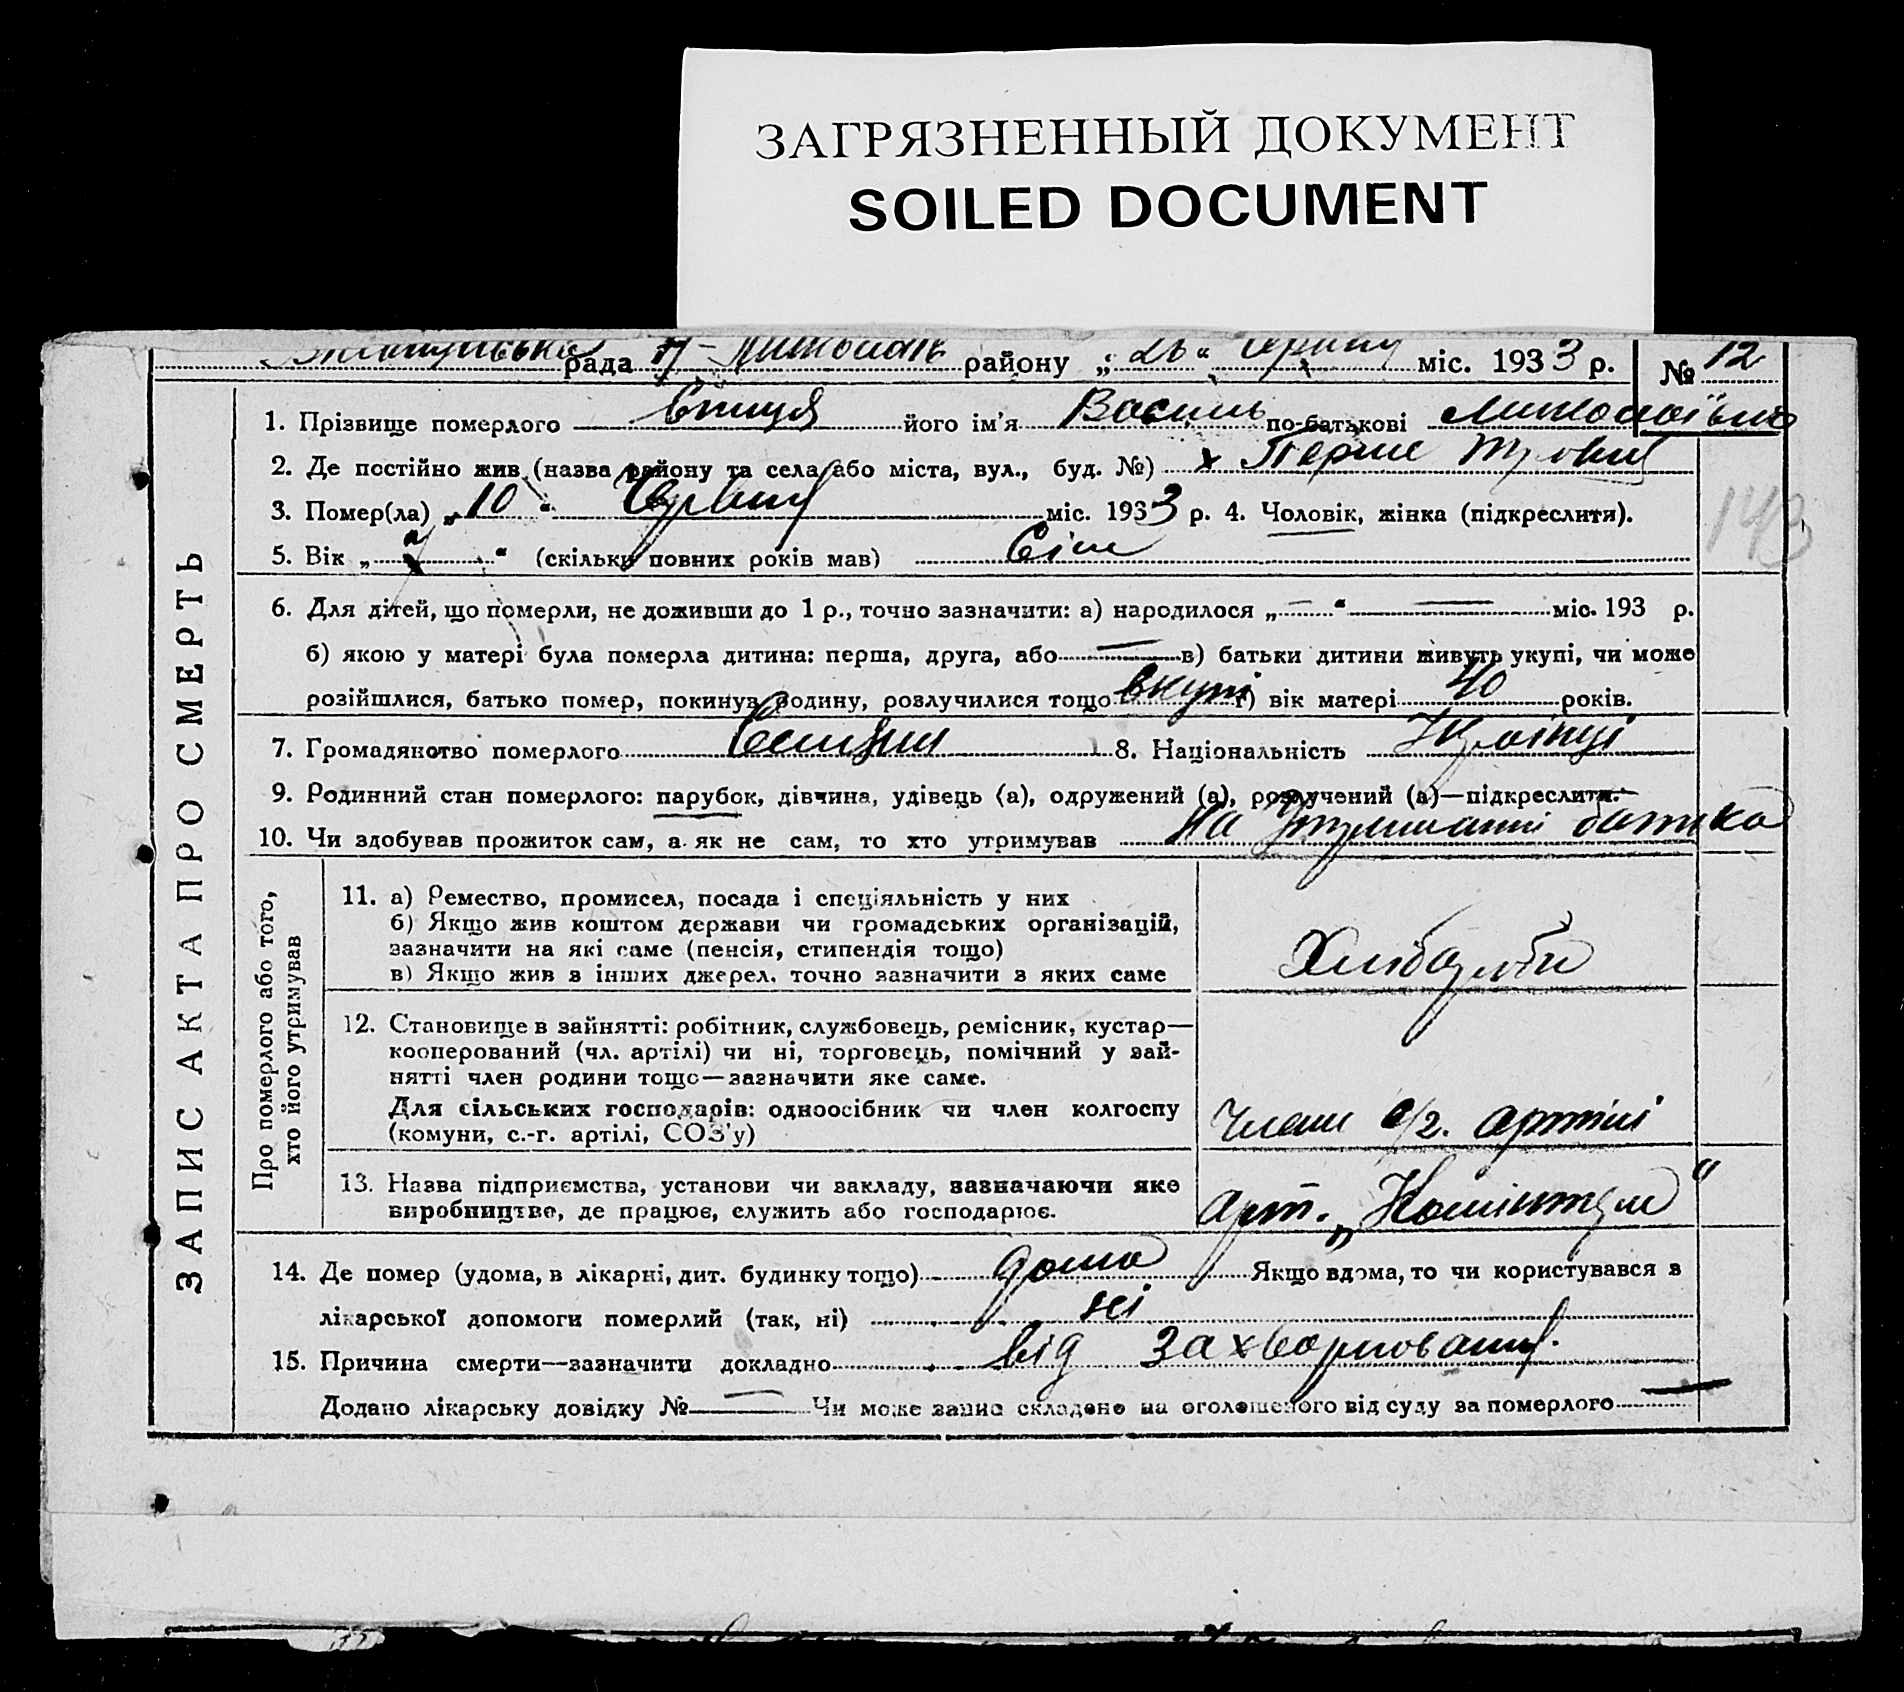 ЗАГРЯЗНЕННЫЙ ДОКУМЕНТ
SOILED DOCUMENT
рада району „26“ міс. 1933 р. № 12
ЗАПИС АКТА ПРО СМЕРТЬ
1. Прізвище померлого його ім'я Василь по-батькові
2. Де постійно жив (назва району та села або міста, вул., буд. №) х Перше Травня
3. Помер(ла) „10“ Червня міс. 1933 р. 4. Чоловік, жінка (підкреслити).
143
5. Вік „7“ (скільки повних років мав) Сім
6. Для дітей, що померли, не доживши до 1 р., точно зазначити: а) народилося „—“ — міс. 193 р.
б) якою у матері була померла дитина: перша, друга, або — в) батьки дитини живуть укупі, чи може
розійшлися, батько помер, покинув родину, розлучилися тощо вкупі г) вік матері 40 років.
7. Громадянство померлого 8. Національність
9. Родинний стан померлого: парубок, дівчина, удівець (а), одружений (а), розлучений (а)—підкреслити.
10. Чи здобував прожиток сам, а як не сам, то хто утримував На утриманні батька
Про померлого або того,
хто його утримував
11. а) Ремество, промисел, посада і спеціяльність у них
б) Якщо жив коштом держави чи громадських організацій,
зазначити на які саме (пенсія, стипендія тощо)
в) Якщо жив з інших джерел, точно зазначити з яких саме
Хлібороби
12. Становище в зайнятті: робітник, службовець, ремісник, кустар—
кооперований (чл. артілі) чи ні, торговець, помічний у зай-
нятті член родини тощо—зазначити яке саме.
Для сільських господарів: одноосібник чи член колгоспу
(комуни, с.-г. артілі, СОЗ'у)
Члени с/г. артілі
13. Назва підприємства, установи чи закладу, зазначаючи яке
виробництво, де працює, служить або господарює.
арт. „Комінтерн“
14. Де помер (удома, в лікарні, дит. будинку тощо) дома Якщо вдома, то чи користувався з
лікарської допомоги померлий (так, ні) ні
15. Причина смерти—зазначити докладно від захворювання.
Додано лікарську довідку № — Чи може запис складено на оголошеного від суду за померлого —